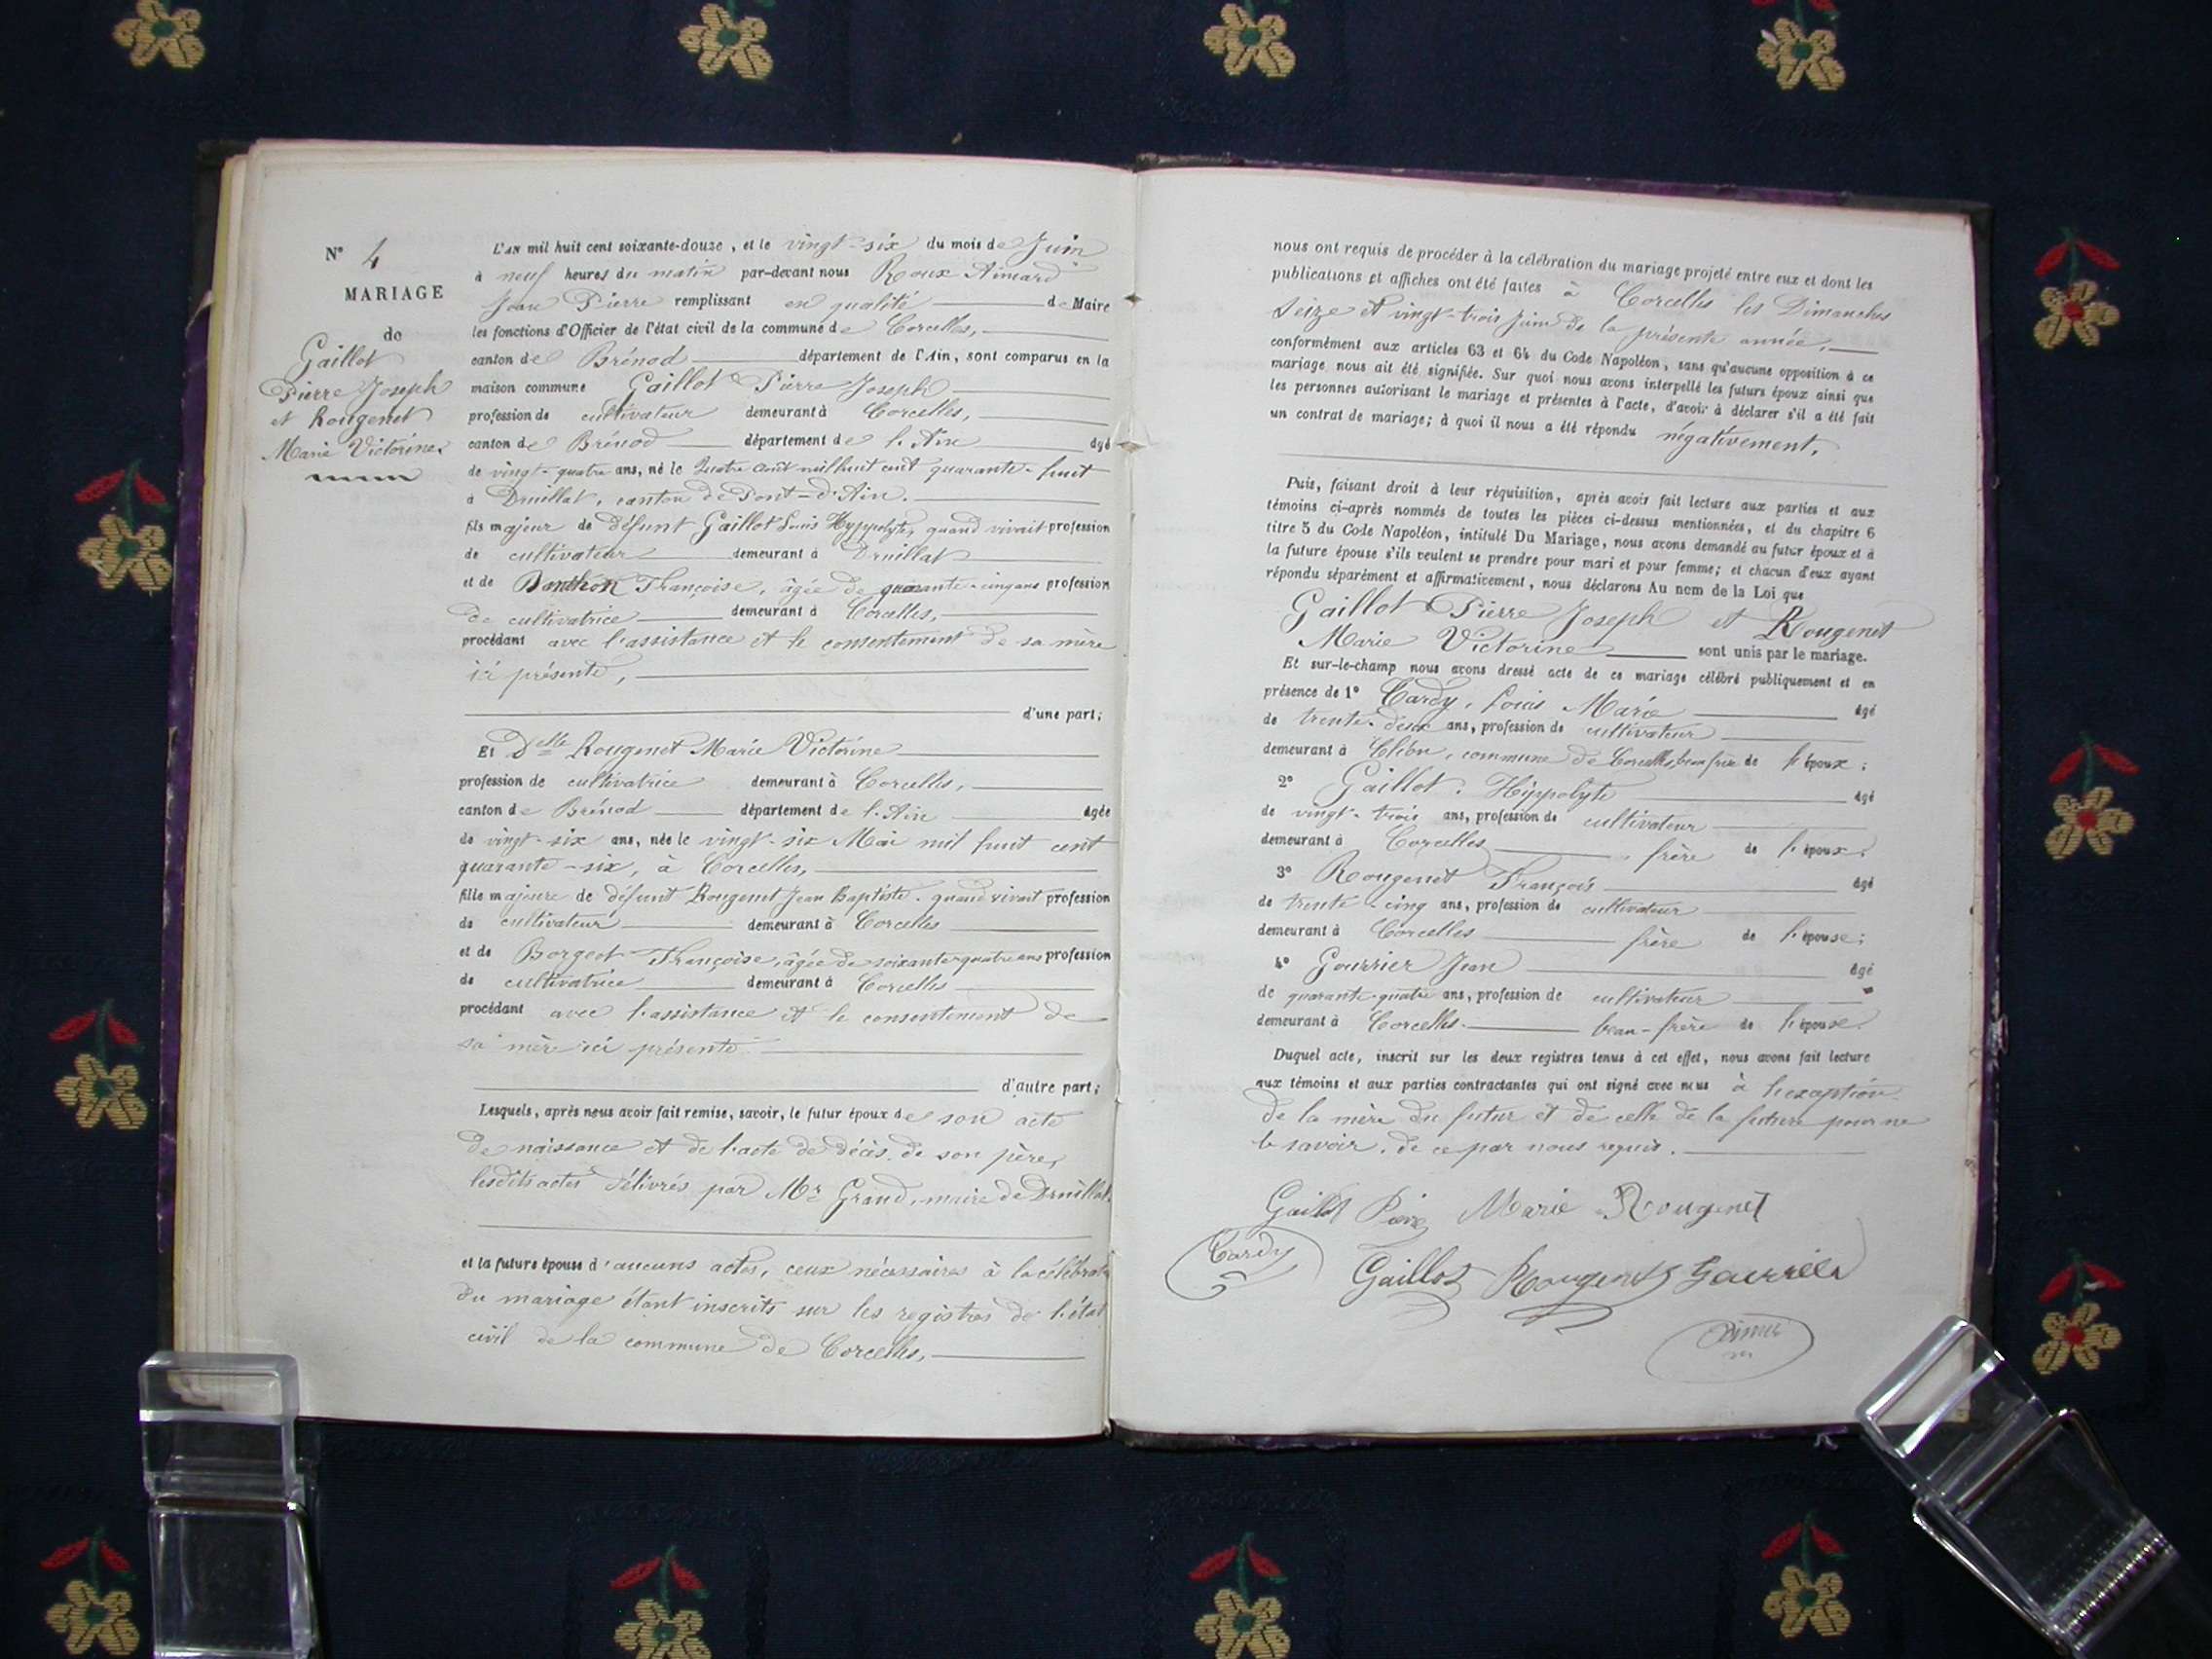 N° 4
MARIAGE
de
Gaillot
Pierre Joseph
et Rougenet
Marie Victorine
L'AN mil huit cent soixante-douze, et le vingt-six du mois de Juin
à neuf heures du matin par-devant nous Roux Aimard
Jean Pierre remplissant en qualité de Maire
les fonctions d'Officier de l'état civil de la commune de Corcelles,
canton de Brénod département de l'Ain, sont comparus en la
maison commune Gaillot Pierre Joseph
profession de cultivateur demeurant à Corcelles,
canton de Brénod département de l'Ain âgé
de vingt-quatre ans, né le quatre Août mil huit cent quarante-huit
à Druillat, canton de Pont-d'Ain.
fils majeur de défunt Gaillot Louis Hyppolyte, quand vivait profession
de cultivateur demeurant à Druillat
et de Françoise, âgée de quarante-cinq ans profession
de cultivatrice demeurant à Corcelles,
procédant avec l'assistance et le consentement de sa mère
ici présente,
d'une part;
Et Delle Rougenet Marie Victorine
profession de cultivatrice demeurant à Corcelles,
canton de Brénod département de l'Ain âgée
de vingt-six ans, née le vingt-six Mai mil huit cent
quarante-six, à Corcelles,
fille majeure de défunt Rougenet Jean Baptiste. quand vivait profession
de cultivateur demeurant à Corcelles
et de Borgeot Françoise, âgée de soixante-quatre ans profession
de cultivatrice demeurant à Corcelles
procédant avec l'assistance et le consentement de
sa mère ici présente
d'autre part;
Lesquels, après nous avoir fait remise, savoir, le futur époux de son acte
de naissance et de l'acte de décès de son père,
lesdits actes délivrés par Mr Grand, maire de Druillat.
et la future épouse d'aucuns actes, ceux nécessaires à la célébrat
du mariage étant inscrits sur les registres de l'état
civil de la commune de Corcelles,
nous ont requis de procéder à la célébration du mariage projeté entre eux et dont les
publications et affiches ont été faites à Corcelles les Dimanches
seize et vingt-trois Juin de la présente année,
conformément aux articles 63 et 64 du Code Napoléon, sans qu'aucune opposition à ce
mariage nous ait été signifiée. Sur quoi nous avons interpellé les futurs époux ainsi que
les personnes autorisant le mariage et présentes à l'acte, d'avoir à déclarer s'il a été fait
un contrat de mariage; à quoi il nous a été répondu négativement.
Puis, faisant droit à leur réquisition, après avoir fait lecture aux parties et aux
témoins ci-après nommés de toutes les pièces ci-dessus mentionnées, et du chapitre 6
titre 5 du Code Napoléon, intitulé Du Mariage, nous avons demandé au futur époux et à
la future épouse s'ils veulent se prendre pour mari et pour femme; et chacun d'eux ayant
répondu séparément et affirmativement, nous déclarons Au nom de la Loi que
Gaillot Pierre Joseph et Rougenet
Marie Victorine sont unis par le mariage.
Et sur-le-champ nous avons dressé acte de ce mariage célébré publiquement et en
présence de 1° Cardy, Louis Marie âgé
de trente-deux ans, profession de cultivateur
demeurant à commune de Corcelles, beau frère de l'époux;
2° Gaillot. Hippolyte âgé
de vingt-trois ans, profession de cultivateur
demeurant à Corcelles, frère de l'époux;
3° Rougenet François âgé
de trente-cinq ans, profession de cultivateur
demeurant à Corcelles frère de l'épouse;
4° Gourrier Jean âgé
de quarante-quatre ans, profession de cultivateur
demeurant à Corcelles. beau-frère de l'épouse.
Duquel acte, inscrit sur les deux registres tenus à cet effet, nous avons fait lecture
aux témoins et aux parties contractantes qui ont signé avec nous à l'exception
de la mère du futur et de celle de la future pour ne
le savoir. de ce par nous requis.
Gaillot Pierre Marie Rougenet
Cardy
Gaillot Rougenet Gourrier